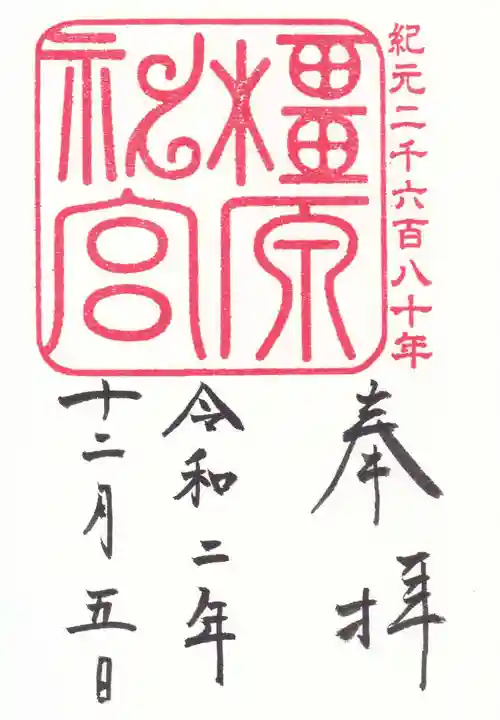 紀元二千六百八十年
橿原
神宮
奉拝
令和二年
十二月五日